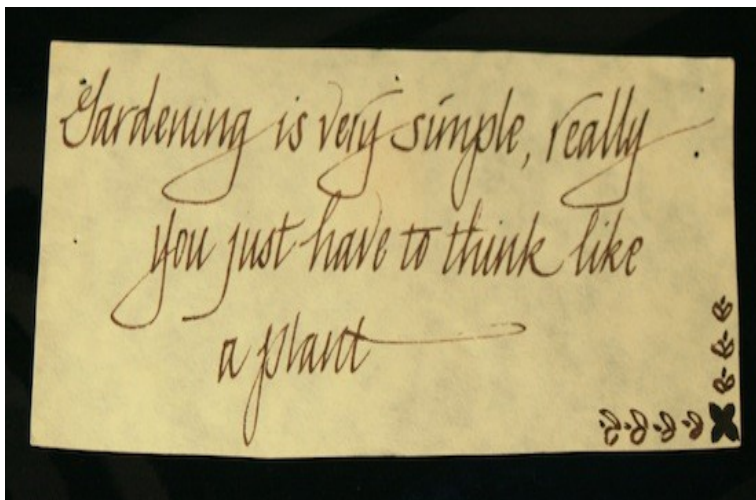 Gardening is very simple, really
you just have to think like
a plant